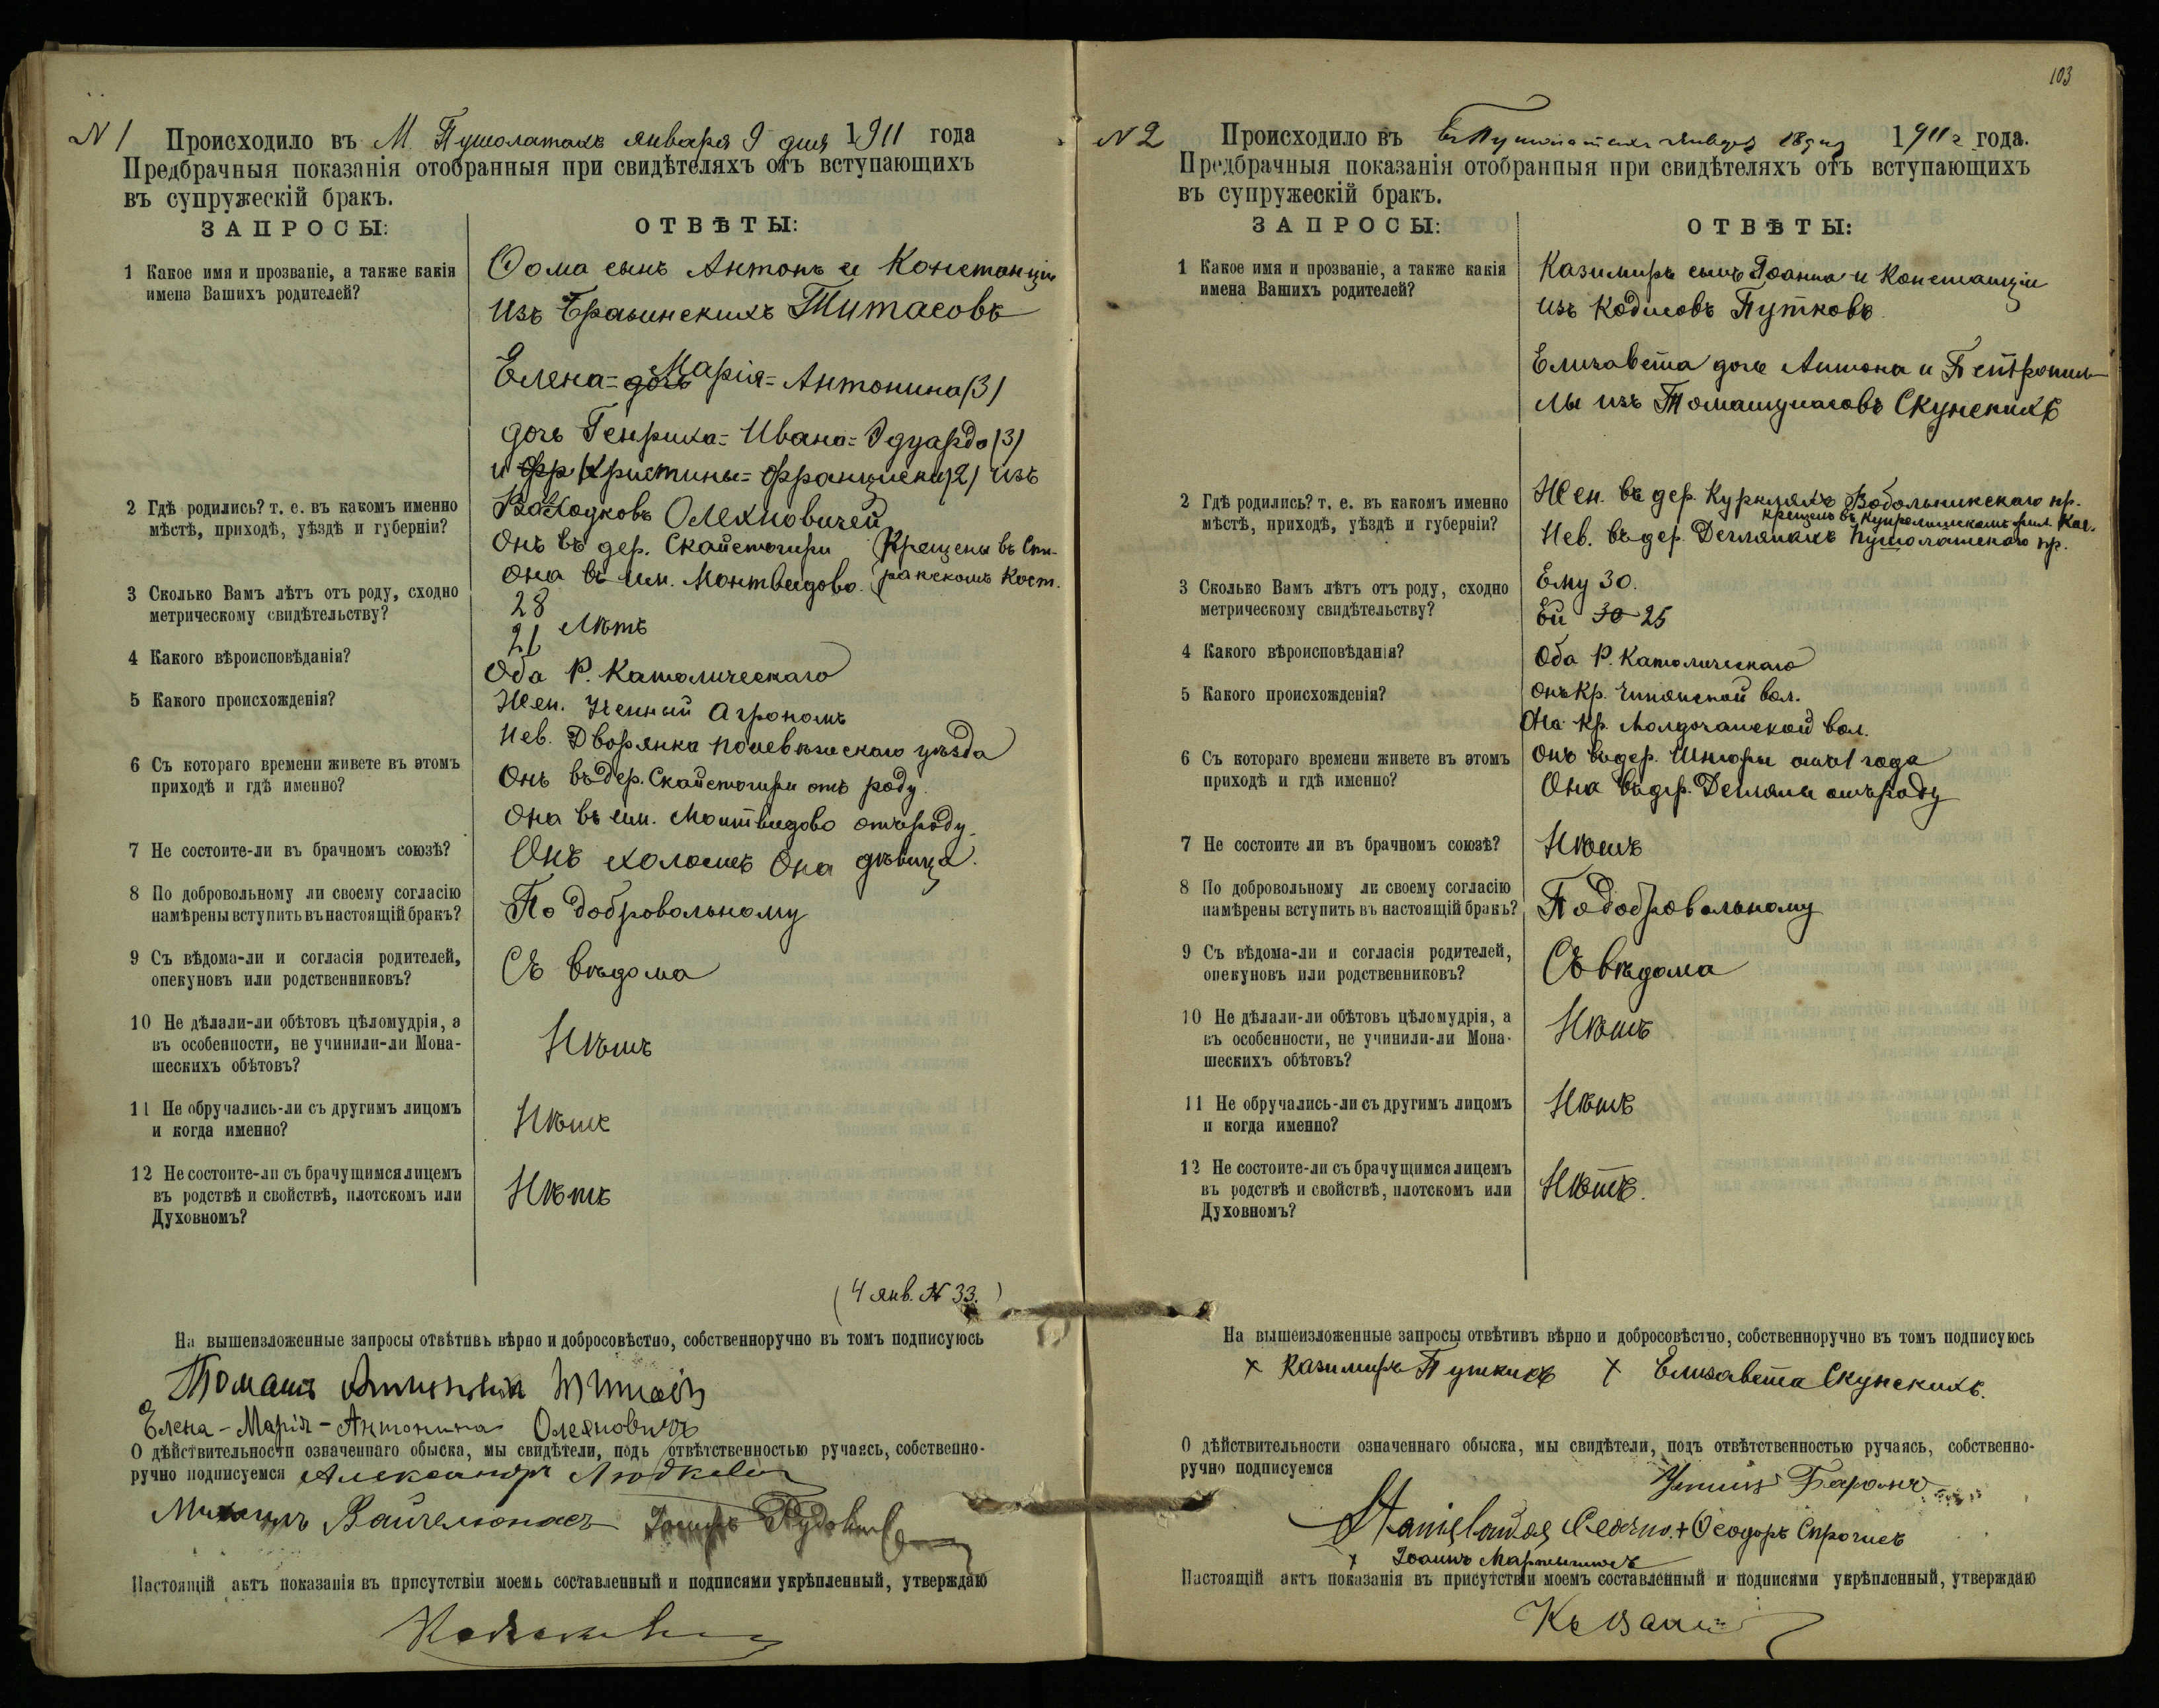 N 1 Происходило въ М. Пушолатахъ января 9 дня 1911 года
Предбрачныя показанія отобранныя при свидѣтеляхъ отъ вступающихъ
въ супружескій бракъ.
ЗАПРОСЫ: ОТВѢТЫ:
1 Какое имя и прозваніе, а также какія
имена Вашихъ родителей?
Ѳома сынъ Антонъ и Констанціи
изъ Титасовъ
Елена= дочь Марія= Антонина (3)
дочь Генриха= Ивана= Эдуарда (3)
и Фр Христины= Франциски (2) изъ
Олехновичей
2 Гдѣ родились? т. е. въ какомъ именно
мѣстѣ, приходѣ, уѣздѣ и губерніи?
Онъ въ дер. Скайстогири Крещены въ
Она въ им. Монтвидово. Кост.
3 Сколько Вамъ лѣтъ отъ роду, сходно
метрическому свидѣтельству?
28
21 Лѣтъ
4 Какого вѣроисповѣданія?
Оба Р. Католическаго
5 Какого происхожденія?
Жен. Ученный Агрономъ
Нев. Дворянка поневѣжскаго уѣзда
6 Съ котораго времени живете въ этомъ
приходѣ и гдѣ именно?
Онъ въ дер. Скайстогири отъ роду.
Она въ им. Монтвидово отъ роду.
7 Не состоите-ли въ брачномъ союзѣ?
Онъ холостъ Она дѣвица.
8 По добровольному ли своему согласію
намѣрены вступить въ настоящій бракъ?
По добровольному
9 Съ вѣдома-ли и согласія родителей,
опекуновъ или родственниковъ?
Съ вѣдома
10 Не дѣлали-ли обѣтовъ цѣломудрія, а
въ особенности, не учинили-ли Мона-
шескихъ обѣтовъ?
Нѣтъ
11 Не обручались-ли съ другимъ лицомъ
и когда именно?
Нѣтъ
12 Не состоите-ли съ брачущимся лицемъ
въ родствѣ и свойствѣ, плотскомъ или
Духовномъ?
Нѣтъ
(4 янв. № 33.)
На вышеизложенные запросы отвѣтивъ вѣрно и добросовѣстно, собственноручно въ томъ подписуюсь
Томашъ
Елена-Марія-Антонина Олехновичъ
О дѣйствительности означеннаго обыска, мы свидѣтели, подъ отвѣтственностью ручаясь, собственно-
ручно подписуемся Александръ Людкевич
Михаилъ Вайчелюнасъ
Настоящій актъ показанія въ присутствіи моемъ составленный и подписями укрѣпленный, утверждаю
103
N 2 Происходило въ въ Пушолатахъ января 18 дня 1911 г. года.
Предбрачныя показанія отобранныя при свидѣтеляхъ отъ вступающихъ
въ супружескій бракъ.
ЗАПРОСЫ: ОТВѢТЫ:
1 Какое имя и прозваніе, а также какія
имена Вашихъ родителей?
Казимиръ сынъ Іоанна и Констанціи
изъ Кодисовъ Путковъ.
Елизавета дочь Антона и Петронил-
лы изъ Томашунасовъ Скунскихъ
2 Гдѣ родились? т. е. въ какомъ именно
мѣстѣ, приходѣ, уѣздѣ и губерніи?
Жен. въ дер. Вобольникскаго пр.
крещенъ въ фил. Кос.
Нев. въ дер. Пушолатскаго пр.
3 Сколько Вамъ лѣтъ отъ роду, сходно
метрическому свидѣтельству?
Ему 30.
Ей 30 25
4 Какого вѣроисповѣданія?
Оба Р. Католическаго
5 Какого происхожденія?
Онъ Кр. вол.
Она Кр. вол.
6 Съ котораго времени живете въ этомъ
приходѣ и гдѣ именно?
Онъ въ дер. отъ 1 года
Она въ дер. отъ роду
7 Не состоите ли въ брачномъ союзѣ?
Нѣтъ
8 По добровольному ли своему согласію
намѣрены вступить въ настоящій бракъ?
По добровольному
9 Съ вѣдома-ли и согласія родителей,
опекуновъ или родственниковъ?
Съ вѣдома
10 Не дѣлали-ли обѣтовъ цѣломудрія, а
въ особенности, не учинили-ли Мона-
шескихъ обѣтовъ?
Нѣтъ
11 Не обручались-ли съ другимъ лицомъ
и когда именно?
Нѣтъ
12 Не состоите-ли съ брачущимся лицемъ
въ родствѣ и свойствѣ, плотскомъ или
Духовномъ?
Нѣтъ.
На вышеизложенные запросы отвѣтивъ вѣрно и добросовѣстно, собственноручно въ томъ подписуюсь
+ Казимиръ + Елизавета Скунскихъ.
О дѣйствительности означеннаго обыска, мы свидѣтели, подъ отвѣтственностью ручаясь, собственно-
ручно подписуемся
+ Ѳеодоръ
+ Іоаннъ
Настоящій актъ показанія въ присутствіи моемъ составленный и подписями укрѣпленный, утверждаю